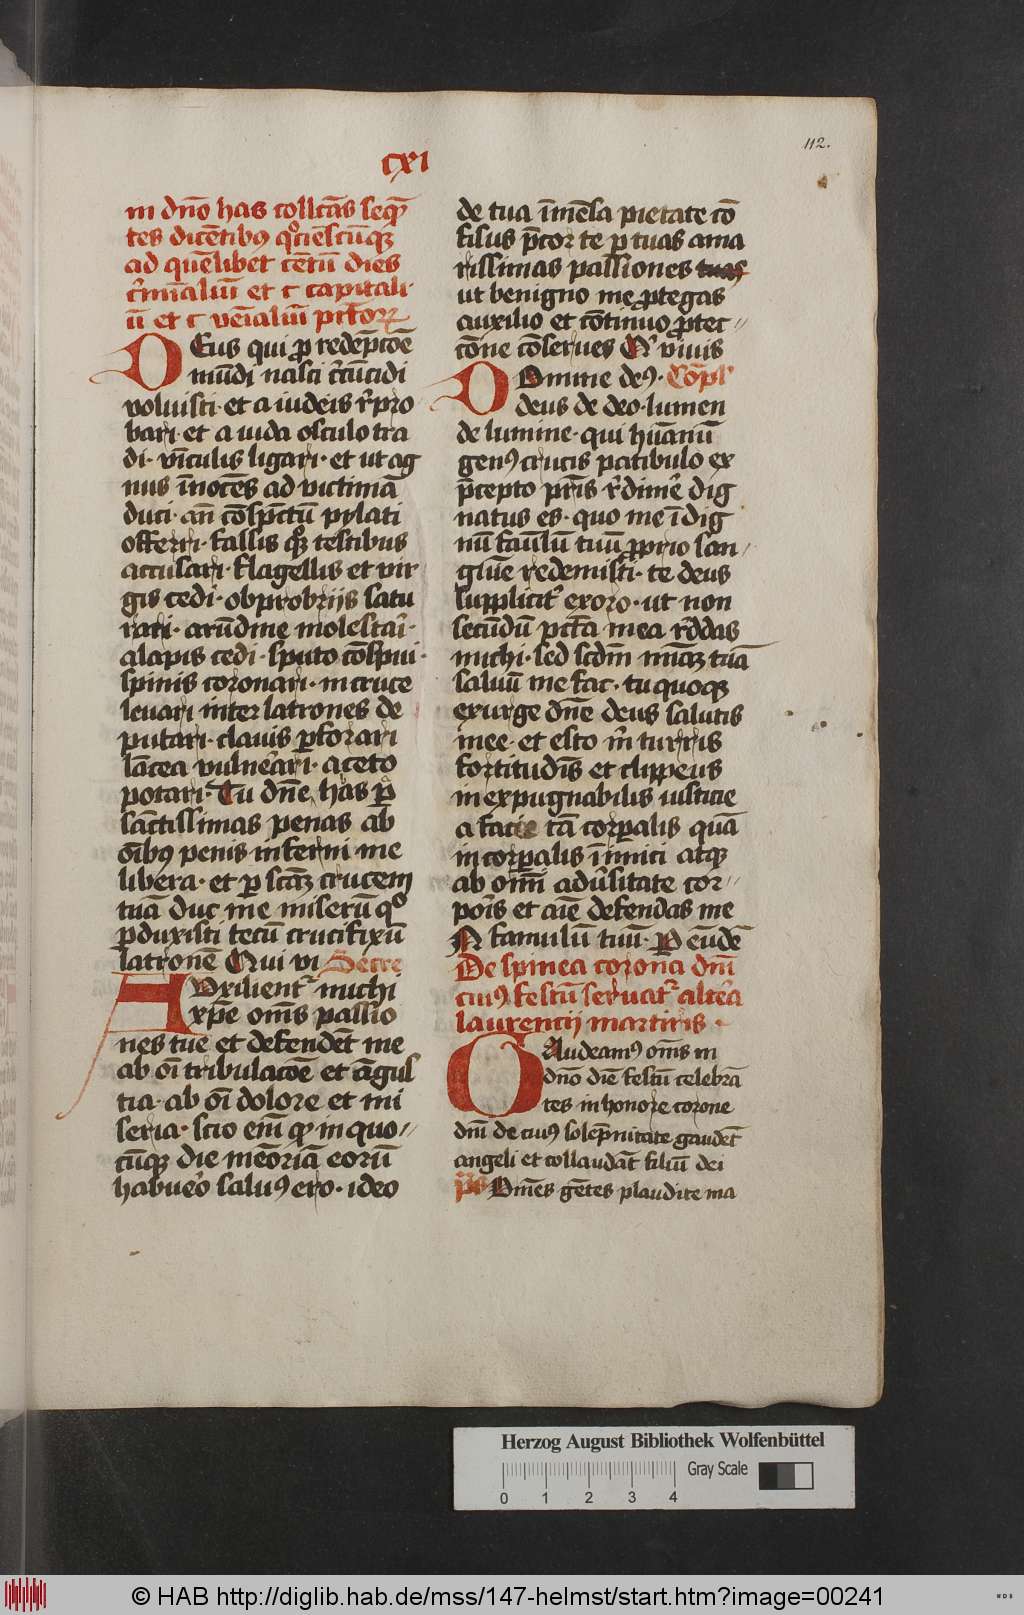 112.
cxi
in dn̄o has collcās seq̄n
tes dicētibꝰ qͦciēscūqꝫ
ad quēlibet cētū dies
c̄minaliū et c capitali
ū et c veīaliū pctōrꝝ
DEus qui ꝓ redēpcōe
mūdi nasci c̄cūcidi
voluisti· et a iudeis r̄pro
bari· et a iuda osculo tra
di· vīculis ligari· et ut ag
nus īnocēs ad victimā
duci· an̄ cōspc̄tū pylati
offerri· falsis qꝫ testibus
accusari· flagellis et vir
gis cedi· obprobriis satu
rari· arūdine molestari·
alapis cedi· sputo cōspui·
spinis coronari· in cruce
levari inter latrones de
putari· clavis ꝑforari
lācea vulnerari· aceto
potari· Tu dn̄e has ꝑ
sāctissimas penas ab
oībꝰ penis inferni me
libera· et ꝑ scāꝫ crucem
tuā duc me miserū qͦ
ꝑduxisti tecū crucifixū
latronē Qui vi Secre
AUxilient᷑ michi
xp̄e om̄s passio
nes tue et defendēt me
ab oī tribulacōe et āgus
tia· ab oī dolore et mi
seria· scio eīm ꝙ in quo〃
cūqꝫ die memoriā eorū
habueo salvꝰ ero· ideo
de tua īmēsa pietate cō
fisus p̄cor te ꝑ tuas ama
rissimas passiones tuas
ut benigno me ꝓtegas
auxilio et cōtinuo ꝓtec〃
cōne cōserves Qͥ vivis
DOmine deꝰ· Cōpl
deus de deo· lumen
de lumine· qui hūanū
genꝰ crucis patibulo ex
p̄cepto pr̄is r̄dim̄e dig
natus es· quo me īdig
nū faulū tuū ꝓprio san〃
guīe redemisti· te deus
supplicit᷑ exoro· ut non
secūdū pctā mea r̄ddas
michi· sed scdm̄ mīaꝫ tuā
salvū me fac· tu quoqꝫ
exurge dn̄e deus salutis
mee· et esto m̄ turris
fortitudīs et clippeus
inexpugnabilis iusticie
a facie tā corꝑalis quā
incorꝑalis īnimici atqꝫ
ab om̄i adūsitate cor〃
poīs et aīe defendas me
N famulū tuū· Pͤ eūdē
De spinea corona dn̄i
cuiꝰ festū servat᷑ altēa
laurencii martiris ·
GAudeamꝰ om̄s in
dn̄o diē festū celebrā
tes in honore corone
dn̄i de cuiꝰ solēpnitate gaudēt
angeli et collaudāt filiū dei
p̄s Om̄es gētes plaudite ma
Herzog August Bibliothek Wolfenbüttel
Gray Scale
0 1 2 3 4
© HAB http://diglib.hab.de/mss/147-helmst/start.htm?image=00241